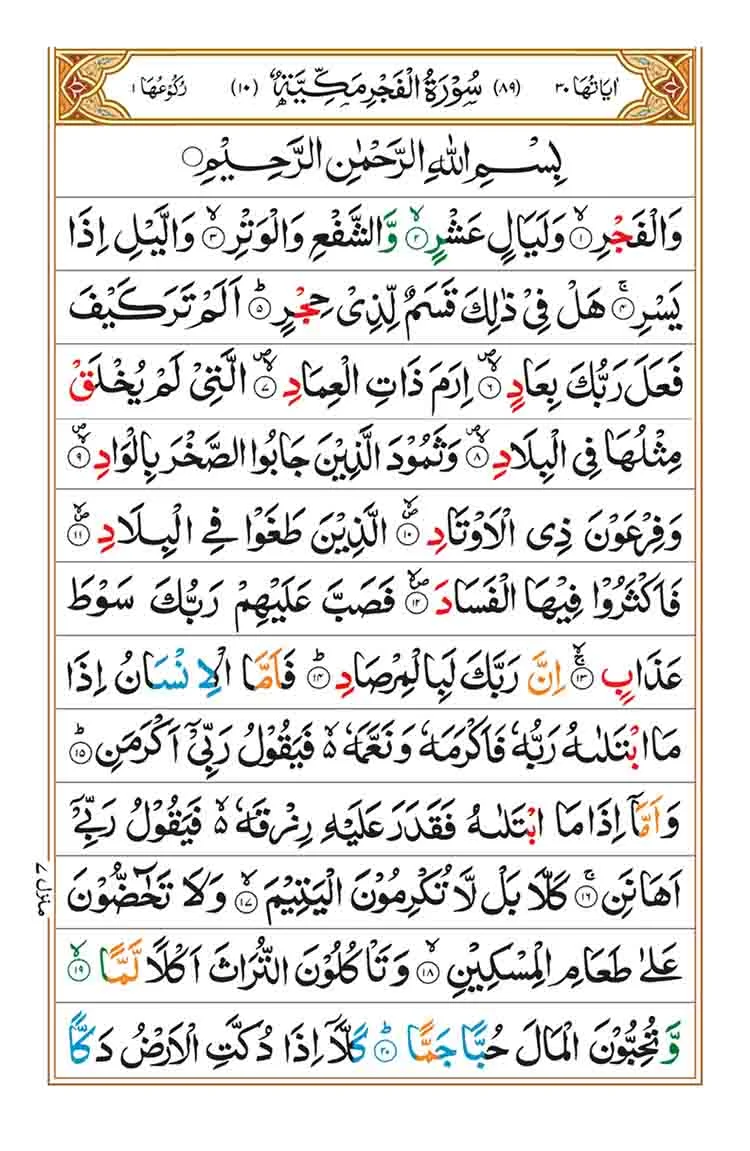 اٰیَاتُهَا ٣٠ (٨٩) سُوْرَةُ الْفَجْرِ مَكِّیَّةٌ (١٠) رُكُوْعُهَا ١
بِسْمِ اللّٰهِ الرَّحْمٰنِ الرَّحِیْمِ ۝
وَالْفَجْرِ ۙ﴿١﴾ وَلَیَالٍ عَشْرٍ ۙ﴿٢﴾ وَّالشَّفْعِ وَالْوَتْرِ ۙ﴿٣﴾ وَالَّیْلِ اِذَا
یَسْرِ ۚ﴿٤﴾ هَلْ فِیْ ذٰلِكَ قَسَمٌ لِّذِیْ حِجْرٍ ؕ﴿٥﴾ اَلَمْ تَرَ كَیْفَ
فَعَلَ رَبُّكَ بِعَادٍ ۪ۙ﴿٦﴾ اِرَمَ ذَاتِ الْعِمَادِ ۪ۙ﴿٧﴾ الَّتِیْ لَمْ یُخْلَقْ
مِثْلُهَا فِی الْبِلَادِ ۪ۙ﴿٨﴾ وَثَمُوْدَ الَّذِیْنَ جَابُوا الصَّخْرَ بِالْوَادِ ۪ۙ﴿٩﴾
وَفِرْعَوْنَ ذِی الْاَوْتَادِ ۪ۙ﴿١٠﴾ الَّذِیْنَ طَغَوْا فِی الْبِلَادِ ۪ۙ﴿١١﴾
فَاَكْثَرُوْا فِیْهَا الْفَسَادَ ۪ۙ﴿١٢﴾ فَصَبَّ عَلَیْهِمْ رَبُّكَ سَوْطَ
عَذَابٍ ۚۙ﴿١٣﴾ اِنَّ رَبَّكَ لَبِالْمِرْصَادِ ؕ﴿١٤﴾ فَاَمَّا الْاِنْسَانُ اِذَا
مَا ابْتَلٰىهُ رَبُّهٗ فَاَكْرَمَهٗ وَنَعَّمَهٗ ۬ۙ فَیَقُوْلُ رَبِّیْۤ اَكْرَمَنِ ؕ﴿١٥﴾
وَاَمَّاۤ اِذَا مَا ابْتَلٰىهُ فَقَدَرَ عَلَیْهِ رِزْقَهٗ ۬ۙ فَیَقُوْلُ رَبِّیْۤ
اَهَانَنِ ۚ﴿١٦﴾ كَلَّا بَلْ لَّا تُكْرِمُوْنَ الْیَتِیْمَ ۙ﴿١٧﴾ وَلَا تَحٰٓضُّوْنَ
عَلٰی طَعَامِ الْمِسْكِیْنِ ۙ﴿١٨﴾ وَتَاْكُلُوْنَ التُّرَاثَ اَكْلًا لَّمًّا ۙ﴿١٩﴾
وَّتُحِبُّوْنَ الْمَالَ حُبًّا جَمًّا ؕ﴿٢٠﴾ كَلَّاۤ اِذَا دُكَّتِ الْاَرْضُ دَكًّا
منزل ٧